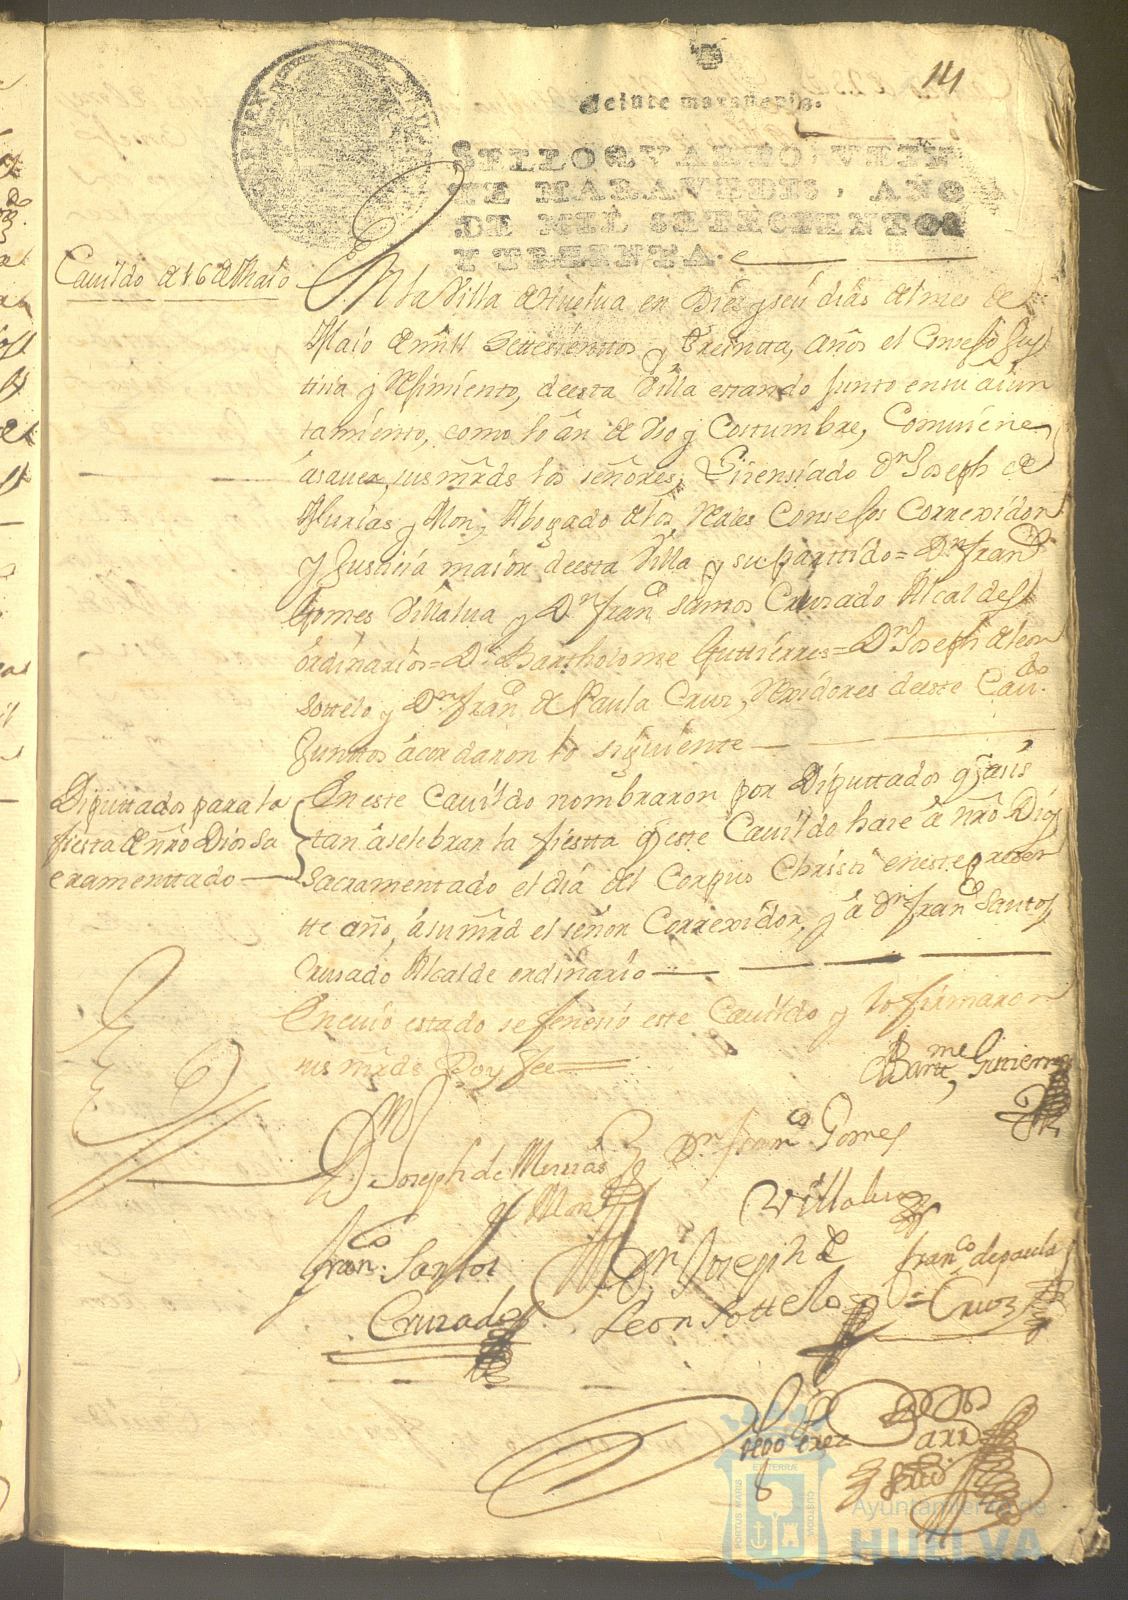 14
Veinte maravedis.
SELLO QVARTO, VEIN
TE MARAVEDIS, AÑO
DE MIL SETECIENTOS
Y TREINTA.
Cauildo de 16 de Maio
En la Villa de Huelua en Dies y seis dias del mes de
Maio de mill Settesienttos y treintta, años el Consejo Jus
tisia y Rejimiento, de esta Villa estando junto en su aiun
tamiento, como lo an de Vso y Costumbre, Comuiene
a sauer, sus mrds los señores, Lisensiado Dn Joseph de
Murias y Mon, Abogado de los Reales Consejos Correxidor
y Justicia maior de esta Villa y su parttido = Dn Franco
Gomes Villalua y Dn Franco Santos Cruzado Alcaldes
ordinarios = Dn Bartholome Guttierres = Dn Joseph de leon
Sottelo y Dn Franco de Paula Cruz, Rexidores de este Caudo
Junttos acordaron lo siguiente
Diputtados para la
fiesta de nro Dios Sa
cramenttado
En este Cauildo nombraron por Diputtados q asis
tan a selebrar la fiestta q este Cauildo hase a nro Dios
Sacramentado el dia del Corpus Christi en este presen
tte año, a su mrd el señor Correxidor, y a Dn Franco Santos
Crusado Alcalde ordinario
En cuio estado se fenesio este Cauildo y lo firmaron
sus mrds Doy fee
Barme Gutierres
Dn Joseph de Murias
y Mon
Dn Franco Gomes
Villalua
Franco Santos
Cruzado
Dn Joseph de
Leon Sottelo
Franco de paula
Cruz
PORTUS MARIS
ET TERRÆ
CUSTODIA
Ayuntamiento de
HUELVA